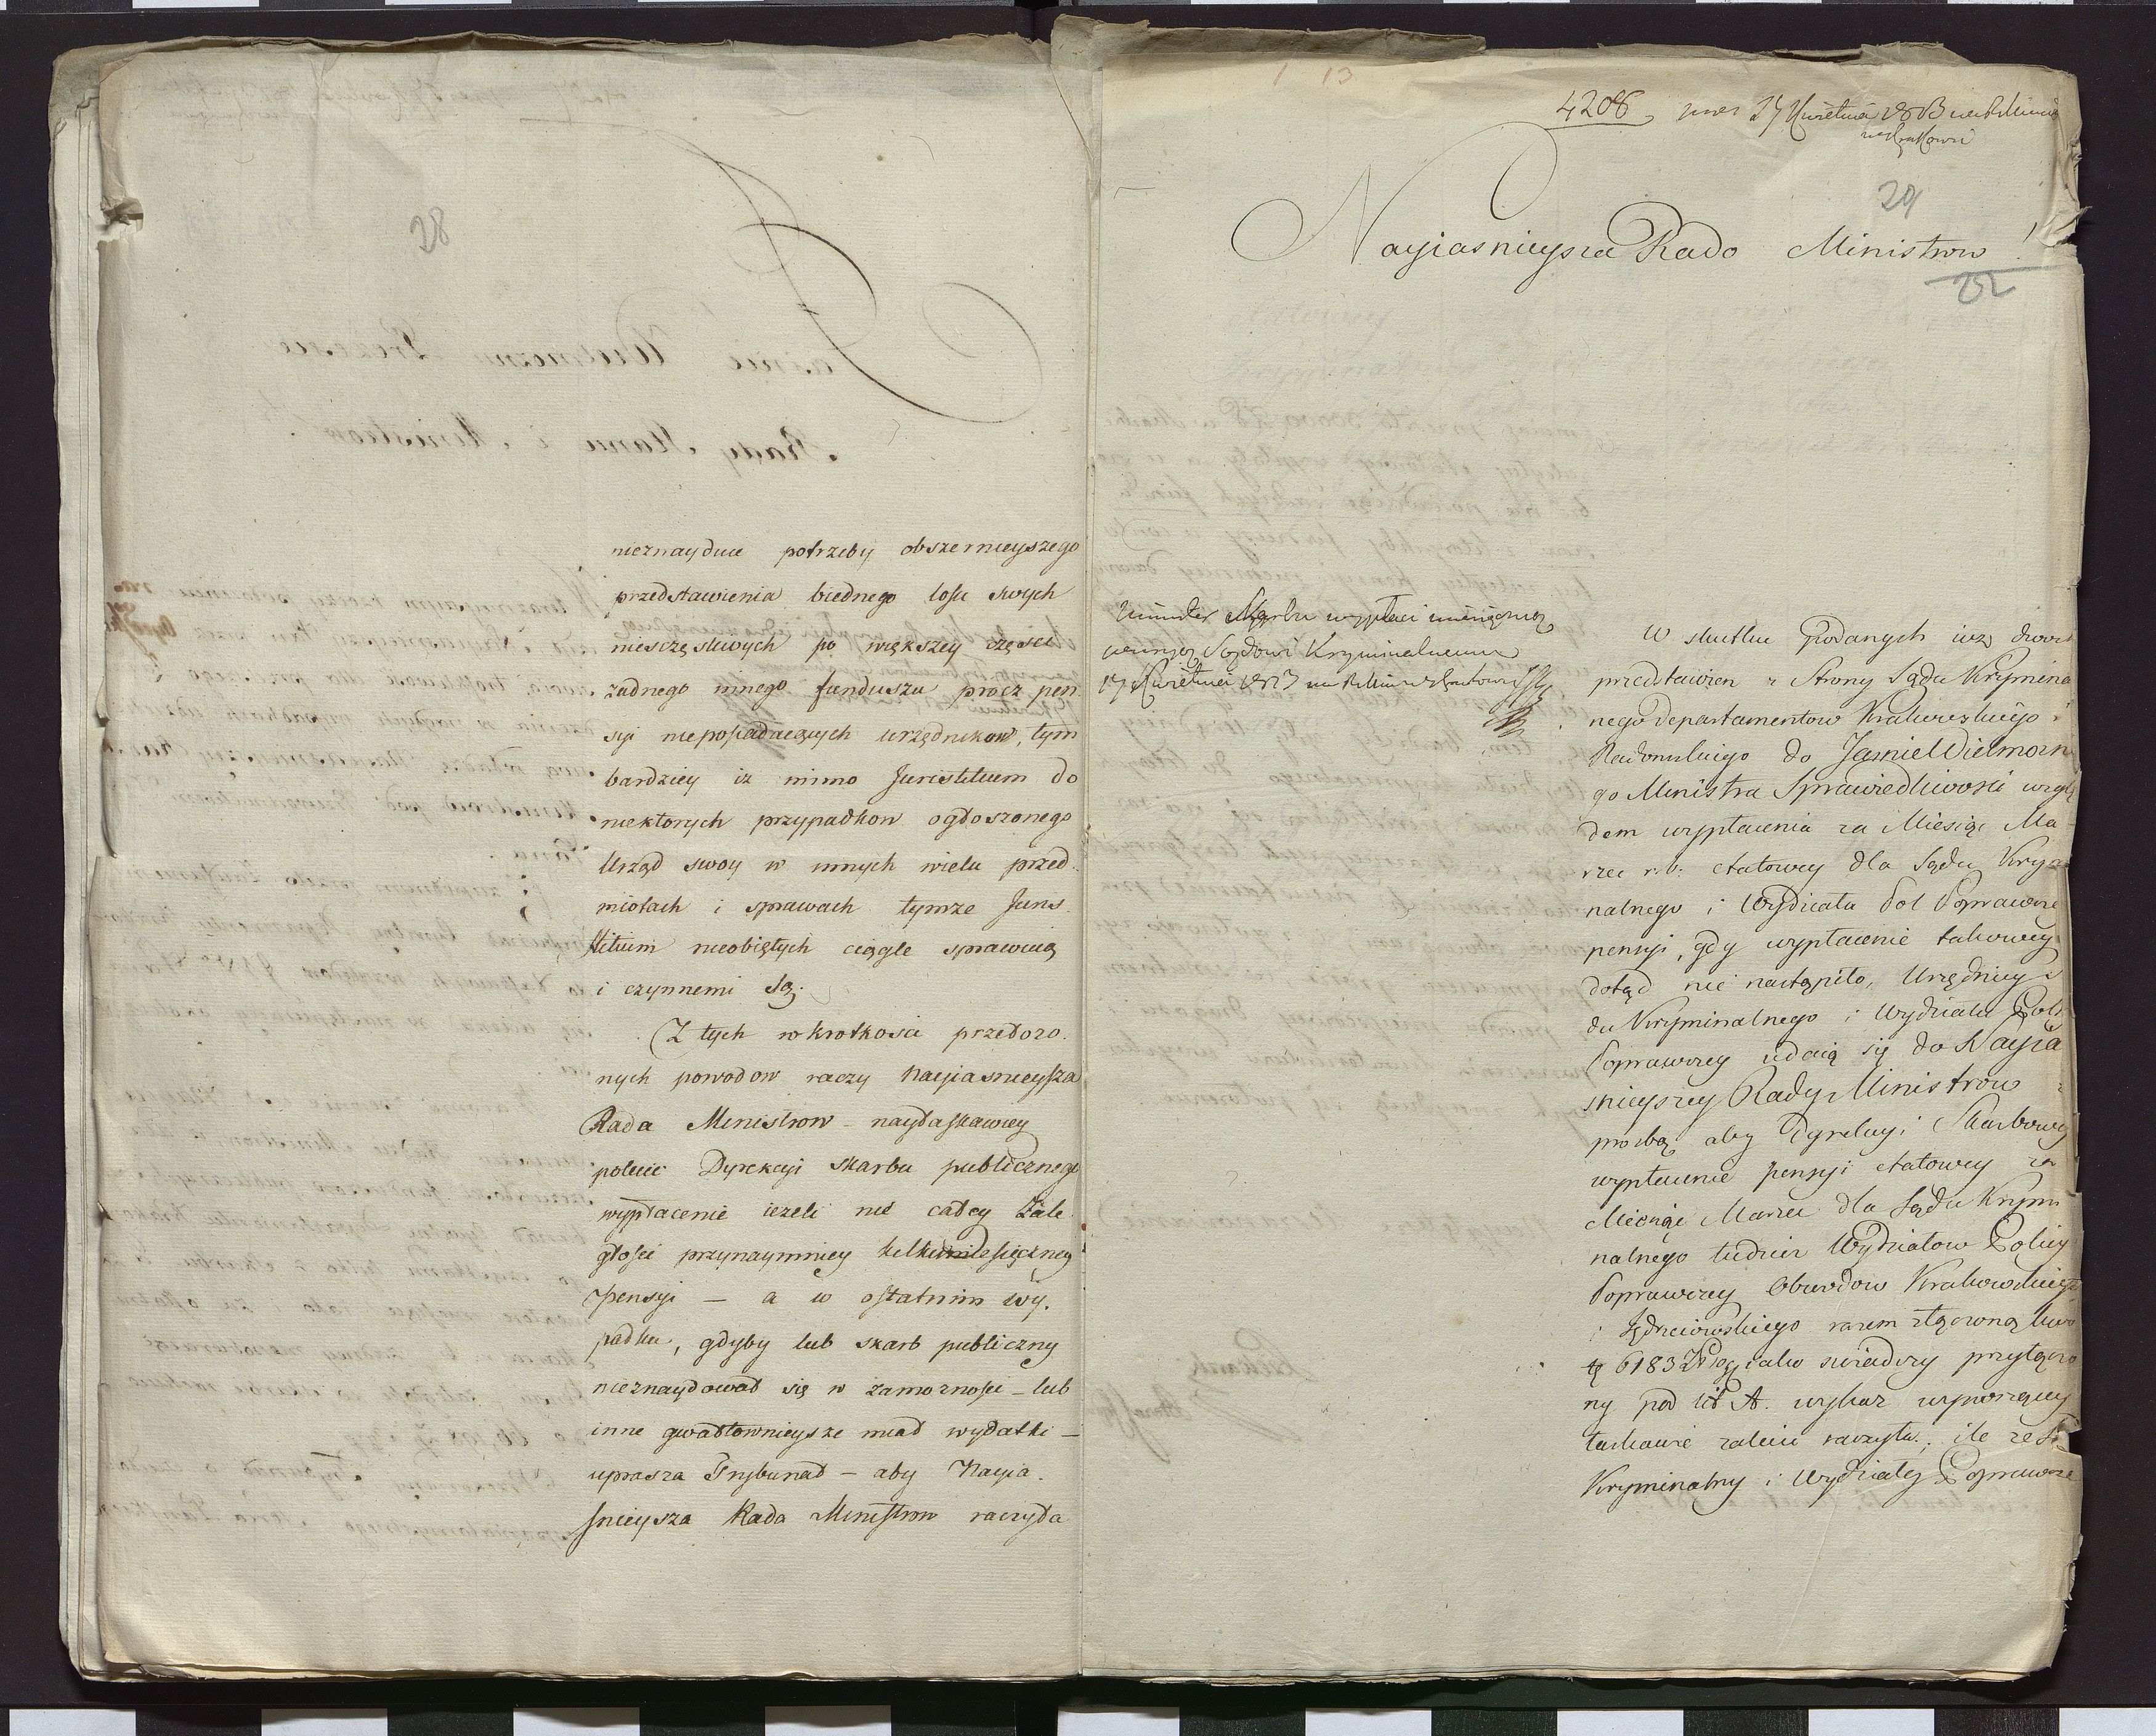 28
nieznayduie potrzeby obszernieyszego
przedstawienia biednego losu swych
niesczęsliwych po większey części
żadnego innego funduszu procz pen
syi nieposiadaiących urzędnikow, tym
bardziey iz mimo Juristitium do
niektorych przypadkow ogłoszonego
Urząd swoy w innych wielu przed
miotach i sprawach tymze Juris
titium nieobiętych ciągle sprawuią
i czynnemi są.
Z tych w krotkosci przełozo
nych powodow raczy Nayiasnieysza
Rada Ministrow - nayłaskawiey
polecic Dyrekcyi skarbu publicznego
wypłacenie iezeli nie całey zale
głosci przynaymniey kilkomiesięczney
pensyi — a w ostatnim wy
padku, gdyby lub skarb publiczny
nieznaydował się w zamoznosci - lub
inne gwałtownieysze miał wydatki —
uprasza Trybunał — aby Nayia
snieysza Rada Ministrow raczyła
1 13
4208, 17 Kwietnia 1813
w Krakowie
29
Nayiasnieysza Rado Ministrow!
22
Minister Skarbu wypłaci miesięczną
pensyą Sądowi Kryminalnemu
17 Kwietnia 1813 w Krakowie
W skutku podanych iuż dwoch
przedstawien z Strony Sądu Krymina
nego Departamentow Krakowskiego i
Radomskiego do Jasnie Wielmozne
go Ministra Sprawiedliwości wzglę
dem wypłacenia za Miesiąc Ma
rzec r. b. etatowey dla Sądu Krymi
nalnego i Wydziału Pol Poprawcze
pensyi, gdy wypłacenie takowey
dotąd nie nastąpiło, Urzędnicy Są
du Kryminalnego i Wydziału Poli
Poprawczey udaią się do Nayia
snieyszey Rady Ministrow z
prosbą aby Dyrekcyi Skarbowey
wypłacenie pensyi etatowey za
Miesiąc Marzec dla Sądu Krymi
nalnego tudzież Wydziałow Policyi
Poprawczey Obwodow Krakowskiego
i Jędrzeiowskiego razem złączoną kwo
tę 6183 Zł iako swiadczy przyłączo
ny pod lit A. wykaz wynoszącey
łaskawie zalecić raczyła; ile ze Są
Kryminalny i Wydziały Poprawcze